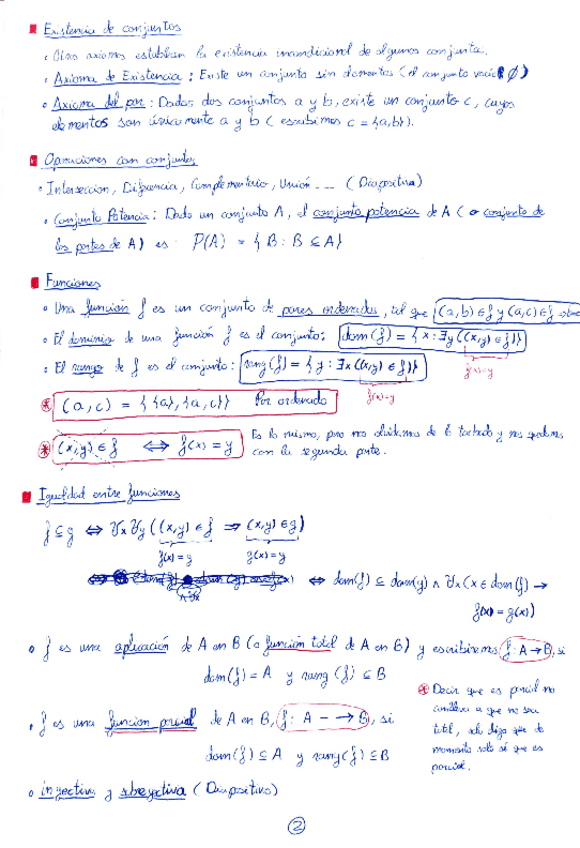 Existencia de conjuntos
· Otros axiomas establecen la existencia incondicional de algunos conjuntos.
· Axioma de Existencia: Existe un conjunto sin elementos (el conjunto vacío ∅)
· Axioma del par: Dados dos conjuntos a y b, existe un conjunto c, cuyos
elementos son únicamente a y b (escribimos c = {a,b}).
Operaciones con conjuntos
· Interseccion, Diferencia, Complementario, Unión... (Diapositiva)
· Conjunto Potencia: Dado un conjunto A, el conjunto potencia de A (o conjunto de
las partes de A) es: P(A) = {B : B ⊆ A}
Funciones
· Una función f es un conjunto de pares ordenados, tal que (a,b) ∈ f y (a,c) ∈ f →
· El dominio de una función f es el conjunto: dom(f) = {x : ∃y((x,y) ∈ f)}
f(x)=y
· El rango de f es el conjunto: rang(f) = {y : ∃x((x,y) ∈ f)}
f(x)=y
* (a,c) = {{a},{a,c}} Par ordenado
* (x,y) ∈ f ⇔ f(x) = y Es lo mismo, pero nos olvidamos de lo tachado y nos quedamos
con la segunda parte.
Igualdad entre funciones
f ⊆ g ⇔ ∀x∀y((x,y) ∈ f ⇒ (x,y) ∈ g)
f(x)=y f(x)=y
⇔ dom(f) ⊆ dom(g) ∧ ∀x(x ∈ dom(f) →
f(x) = g(x))
· f es una aplicación de A en B (o función total de A en B) y escribiremos f: A → B, si
dom(f) = A y rang(f) ⊆ B
· f es una funcion parcial de A en B, f: A - → B, si
dom(f) ⊆ A y rang(f) ⊆ B
* Decir que es parcial no
conlleva a que no sea
total, solo digo que de
momento solo sé que es
parcial.
· inyectiva y sobreyectiva (Diapositiva)
2